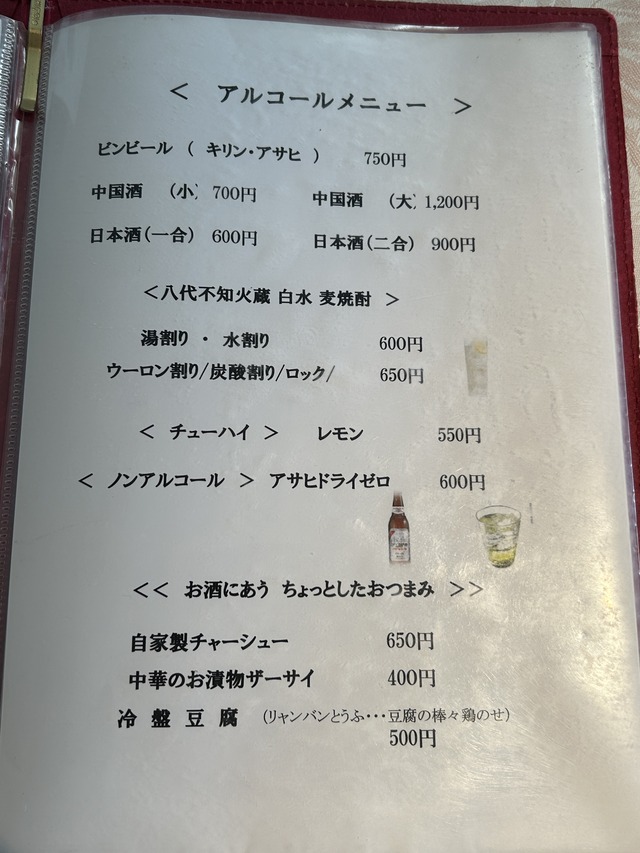 ＜ アルコールメニュー ＞
ビンビール （ キリン・アサヒ ） 750円
中国酒 （小） 700円 中国酒 （大） 1,200円
日本酒（一合） 600円 日本酒（二合） 900円
＜八代不知火蔵 白水 麦焼酎 ＞
湯割り ・ 水割り 600円
ウーロン割り/炭酸割り/ロック/ 650円
＜ チューハイ ＞ レモン 550円
＜ ノンアルコール ＞ アサヒドライゼロ 600円
＜＜ お酒にあう ちょっとしたおつまみ ＞＞
自家製チャーシュー 650円
中華のお漬物ザーサイ 400円
冷 盤 豆 腐 （リャンバンとうふ・・・豆腐の棒々鶏のせ）
500円